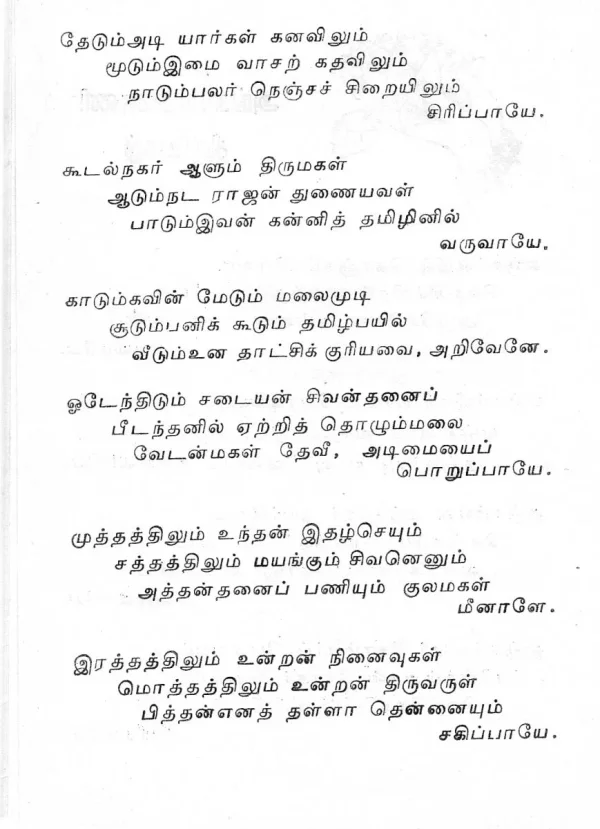 தேடும்அடி யார்கள் கனவிலும்
மூடும்இமை வாசற் கதவிலும்
நாடும்பலர் நெஞ்சச் சிறையிலும்
சிரிப்பாயே.
கூடல்நகர் ஆளும் திருமகள்
ஆடும்நட ராஜன் துணையவள்
பாடும்இவன் கன்னித் தமிழினில்
வருவாயே.
காடும்கவின் மேடும் மலைமுடி
சூடும்பனிக் கூடும் தமிழ்பயில்
வீடும்உன தாட்சிக் குரியவை, அறிவேனே.
ஓடேந்திடும் சடையன் சிவன்தனைப்
பீடந்தனில் ஏற்றித் தொழும்மலை
வேடன்மகள் தேவீ, அடிமையைப்
பொறுப்பாயே.
முத்தத்திலும் உந்தன் இதழ்செயும்
சத்தத்திலும் மயங்கும் சிவனெனும்
அத்தன்தனைப் பணியும் குலமகள்
மீனாளே.
இரத்தத்திலும் உன்றன் நினைவுகள்
மொத்தத்திலும் உன்றன் திருவருள்
பித்தன்எனத் தள்ளா தென்னையும்
சகிப்பாயே.